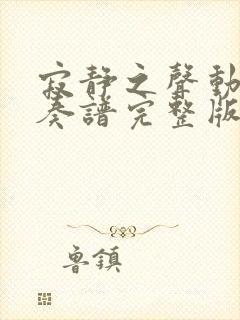 寂靜之聲動
奏譜完整版
魯鎮